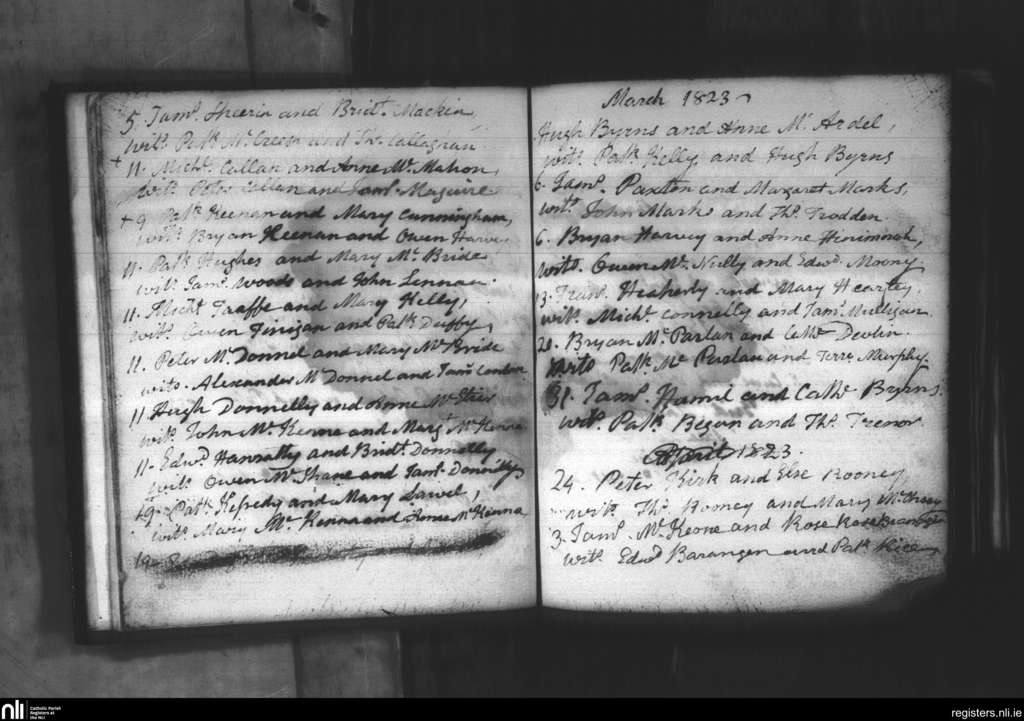 5. Jam.s Sheerin and Brid.t Mackin,
wit.s Pat.k Mc Creesh and Th.s Callaghan
+ 11. Mich.l Callan and Anne Mc Mahon,
wit.s Peter Callan and Jam.s Maguire
+ 9. Pat.k Keenan and Mary Cunningham,
wit.s Bryan Keenan and Owen Harvey
11. Pat.k Hughes and Mary Mc Bride
wit.s Jam.s Woods and John Lennan
11. Mich.l Taaffe and Mary Kelly,
wit.s Owen Finigan and Pat.k Duffy,
11. Peter Mc Donnel and Mary Mc Bride
wits. Alexander Mc Donnel and Jam.s
11 Hugh Donnelly and Anne Mc
wit.s John Mc Kenna and Marg.t Mc Kenna
11. Edw.d Hanratty and Brid.t Donnelly
wit.s Owen Mc Shane and Jam.s Donnelly
19. Pat.k and Mary
wit.s Mary Mc Kenna and Anne Mc Kenna
19
March 1823
Hugh Byrns and Anne Mc Ardel,
wit.s Pat.k Kelly and Hugh Byrns
6. Jam.s Paxton and Margaret Marks,
wit.s John Marks and Th.s Trodden
6. Bryan Harvey and Anne
wits. Owen Mc Nully and Edw.d Moony
13. Fran.s Heaherty and Mary Hearty,
wit.s Mich.l Connelly and Jam.s Mulligan
20. Bryan Mc Parlan and Cath.e Devlin
wits Pat.k Mc Parlan and Terr.e Murphy.
31. Jam.s Hamil and Cath.e Byrns.
wit.s Pat.k Began and Th.s Trenor
April 1823.
24. Peter Kirk and Else Rooney
wit.s Th.s Romey and Mary Mc
3. Jam.s Mc Keone and Rose
wit.s Edw.d Barangen and Pat.k Rice
nli
Catholic Parish
Registers at
the NLI
registers.nli.ie